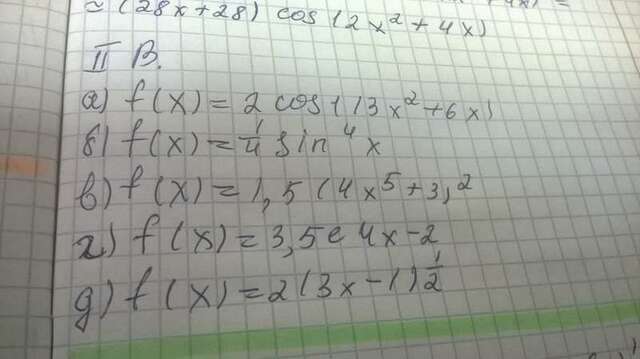 (28x+28) cos (2x²+4x)
II B.
а) f(x) = 2 cos (13x²+6x)
б) f(x) = 1/4 sin⁴ x
в) f(x) = 1,5 (4x⁵+3)²
г) f(x) = 3,5e4x-2
д) f(x) = 2(3x-1)½